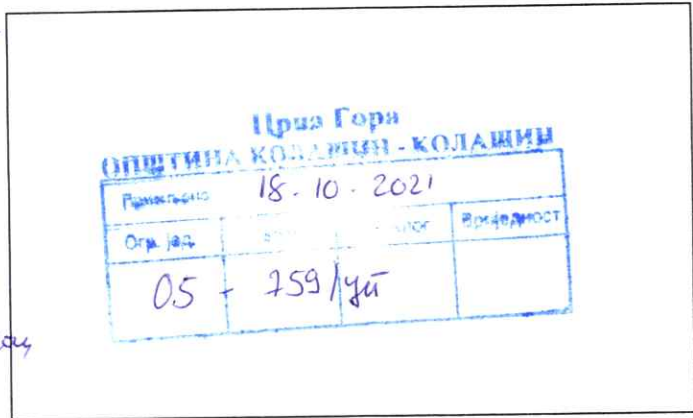 Црна Гора
ОПШТИНА КОЛАШИН - КОЛАШИН
Примљено 18-10-2021
Орг. јед. Прилог Вриједност
05 - 759/уп